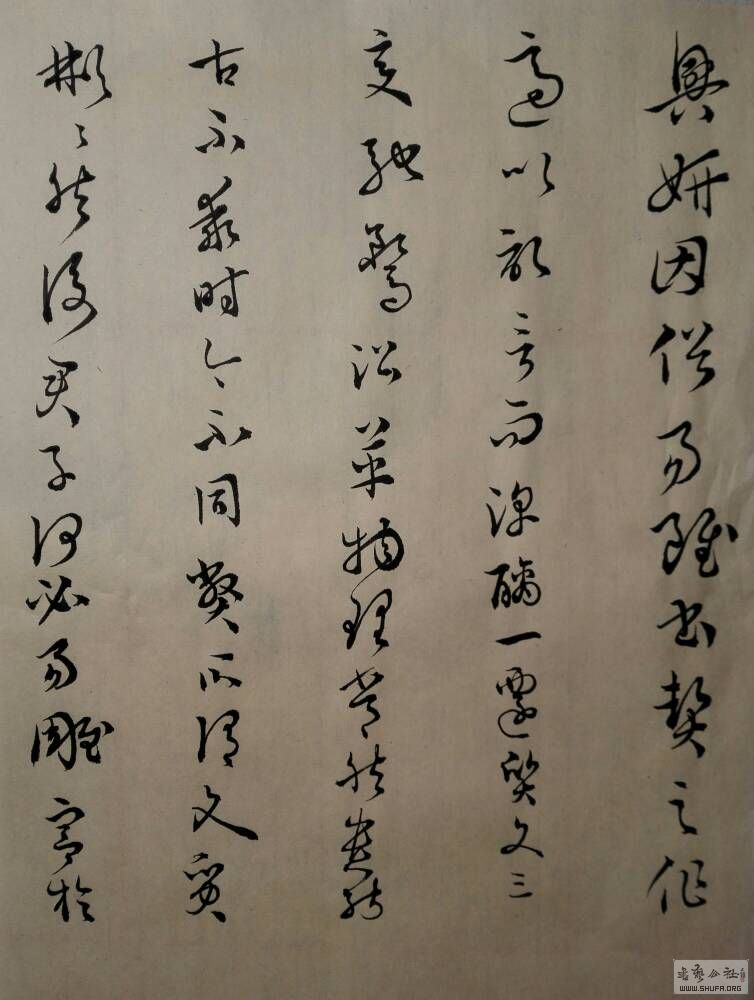 興妍因俗易雖書契之作
適以記言而淳醨一遷質文三
變馳騖沿革物理常然貴能
古不乖時今不同弊所謂文質
彬彬然後君子何必易雕宮於
書藝公社
WWW.SHUFA.ORG